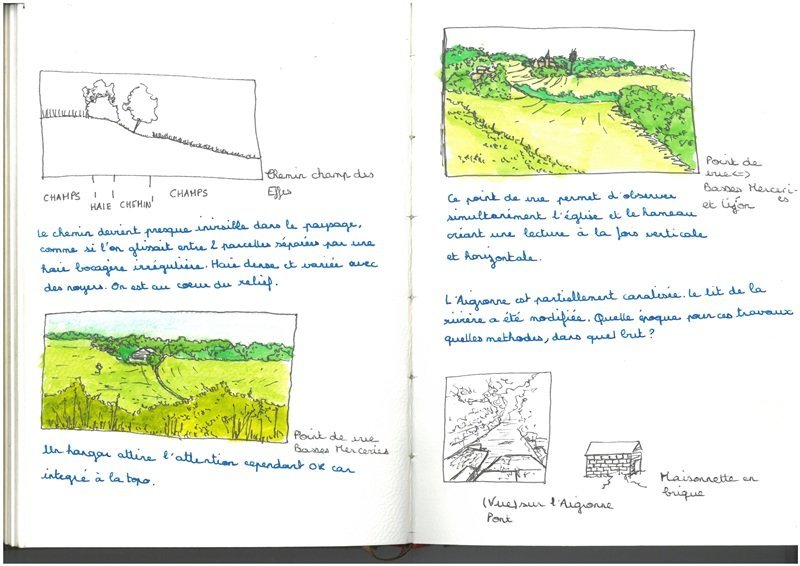 Chemin champ des
Effes
CHAMPS HAIE CHEMIN CHAMPS
Le chemin devient presque invisible dans le paysage,
comme si l'on glissait entre 2 parcelles séparées par une
haie bocagère irrégulière. Haie dense et variée avec
des noyers. On est au coeur du relief.
Point de vue
Basses Merceries
Un hangar attire l'attention cependant OK car
integré à la topo.
Point de
vue <=>
Basses Merceries
et
Ce point de vue permet d'observer
simultanément l'église et le hameau
créant une lecture à la fois verticale
et horizontale.
L'Aigronne est partiellement canalisée. Le lit de la
rivière a été modifiée. Quelle époque pour ces travaux
quelles methodes, dans quel but ?
(Vue) sur l'Aigronne
Pont
Maisonnette en
brique